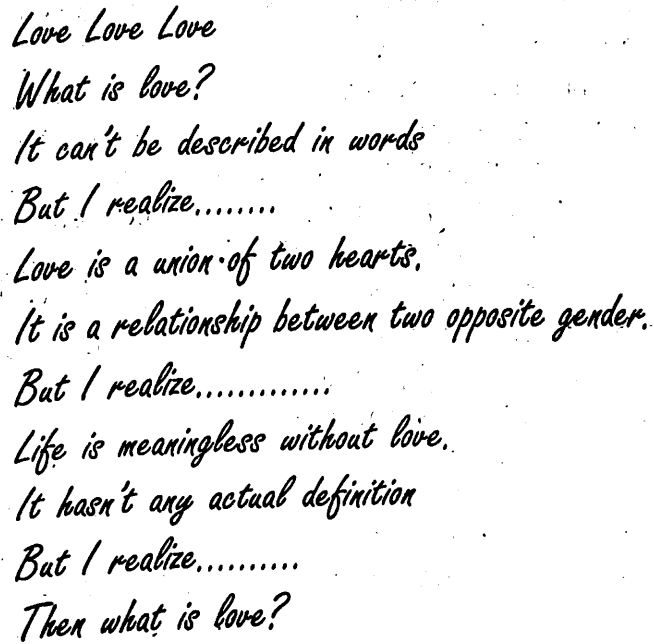 Love Love Love
What is love?
It can't be described in words
But I realize........
Love is a union of two hearts.
It is a relationship between two opposite gender.
But I realize.............
Life is meaningless without love.
It hasn't any actual definition
But I realize..........
Then what is love?